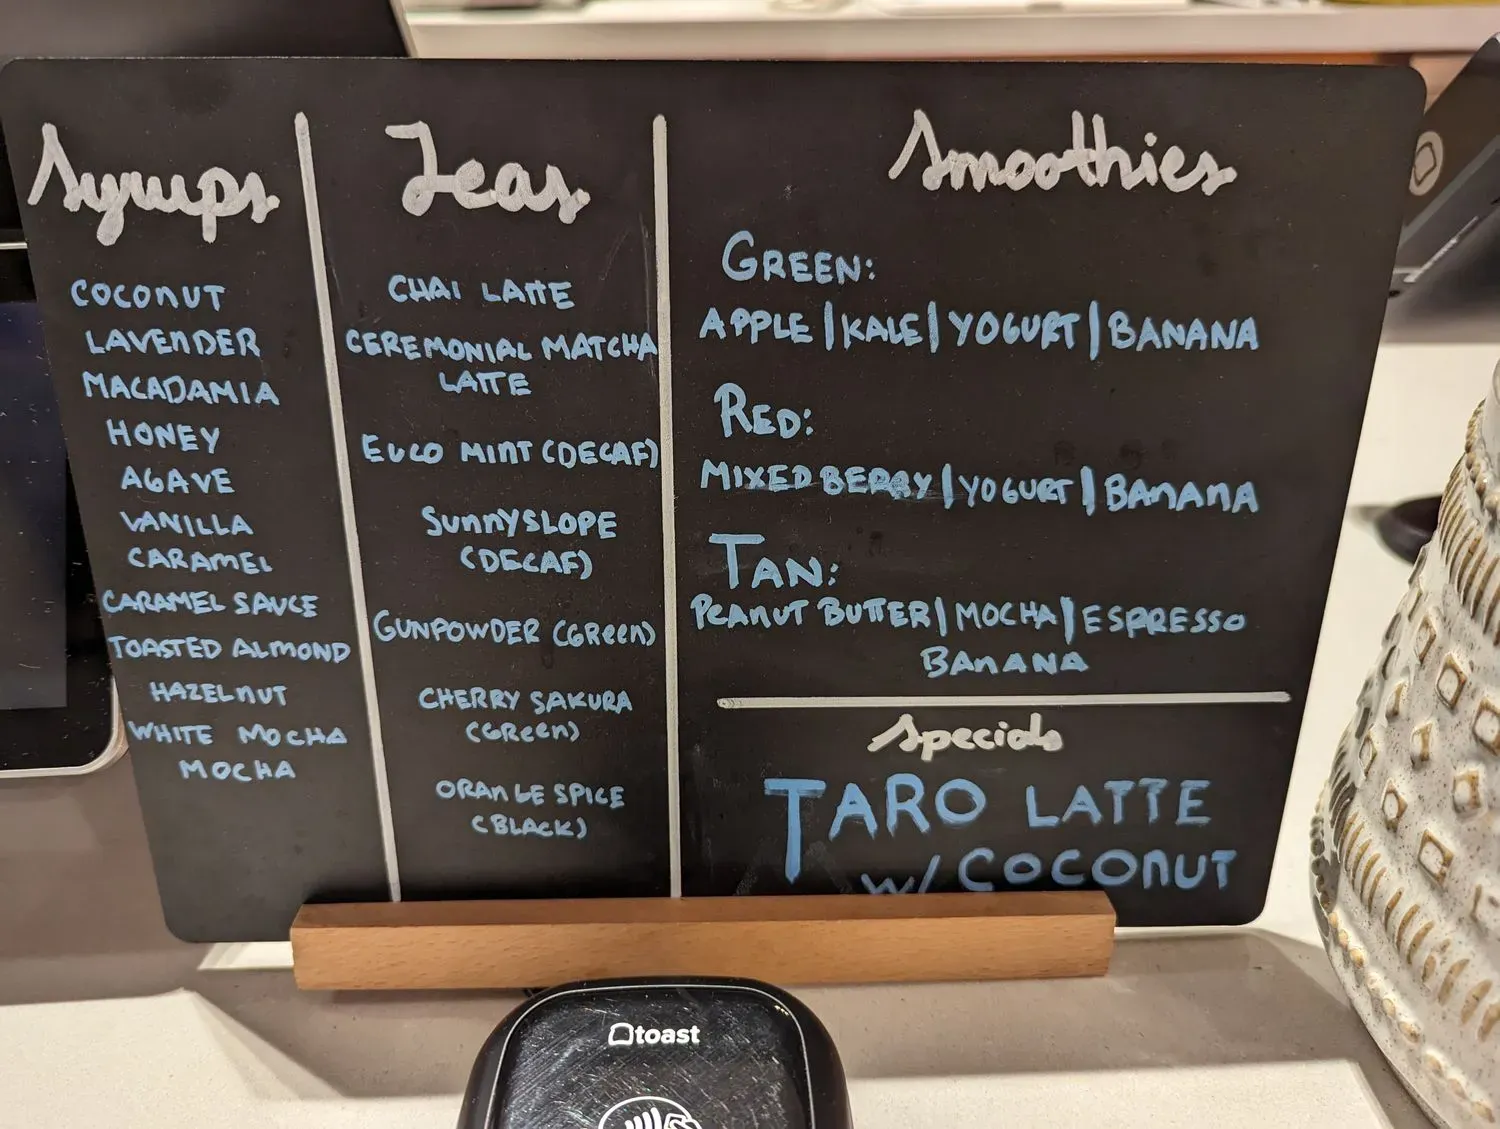 Syrups
COCONUT
LAVENDER
MACADAMIA
HONEY
AGAVE
VANILLA
CARAMEL
CARAMEL SAUCE
TOASTED ALMOND
HAZELNUT
WHITE MOCHA
MOCHA
Teas
CHAI LATTE
CEREMONIAL MATCHA
LATTE
EUCO MINT (DECAF)
SUNNYSLOPE
(DECAF)
GUNPOWDER (GREEN)
CHERRY SAKURA
(GREEN)
ORANGE SPICE
(BLACK)
Smoothies
GREEN:
APPLE | KALE | YOGURT | BANANA
RED:
MIXED BERRY | YOGURT | BANANA
TAN:
PEANUT BUTTER | MOCHA | ESPRESSO
BANANA
Specials
TARO LATTE
W/ COCONUT
toast